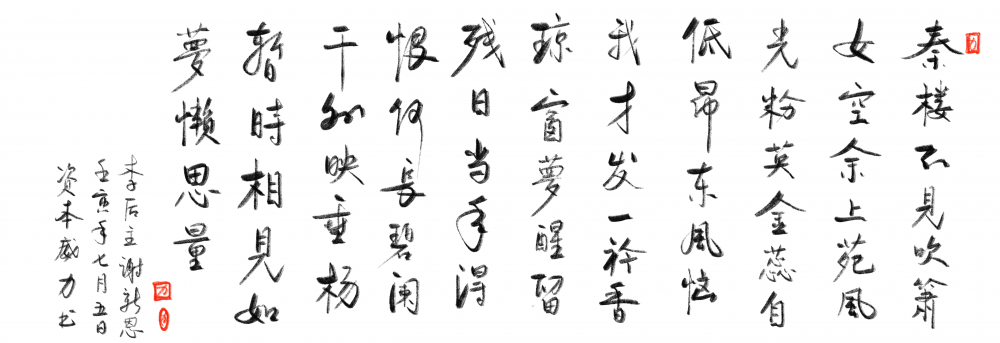 秦楼不見吹箫
女空余上苑風
光粉英金蕊自
低昂东風恼
我才发一衿香
琼窗夢醒留
残日当年得
恨何長碧阑
干外映垂杨
暂時相見如
夢懒思量
李后主谢新恩
壬寅年七月五日
资本威力书